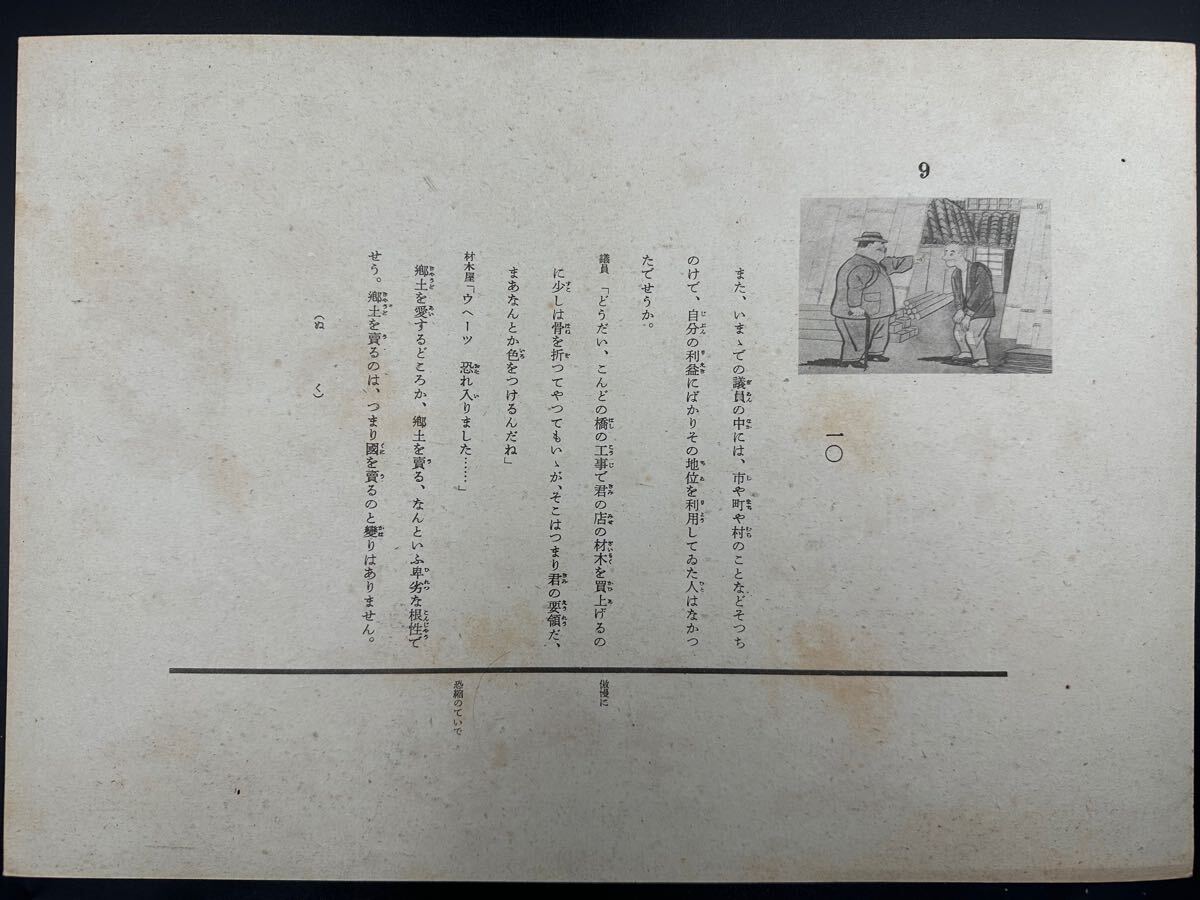 9
一〇
また、いまゝでの議員の中には、市や町や村のことなどそつち
のけで、自分の利益にばかりその地位を利用してゐた人はなかつ
たでせうか。
議員「どうだい、こんどの橋の工事で君の店の材木を買上げるの
傲慢に
に少しは骨を折つてやつてもいゝが、そこはつまり君の要領だ、
まあなんとか色をつけるんだね」
材木屋「ウヘーツ 恐れ入りました……」
恐縮のていで
郷土を愛するどころか、郷土を賣る、なんといふ卑劣な根性で
せう。郷土を賣るのは、つまり國を賣るのと變りはありません。
（ぬく）